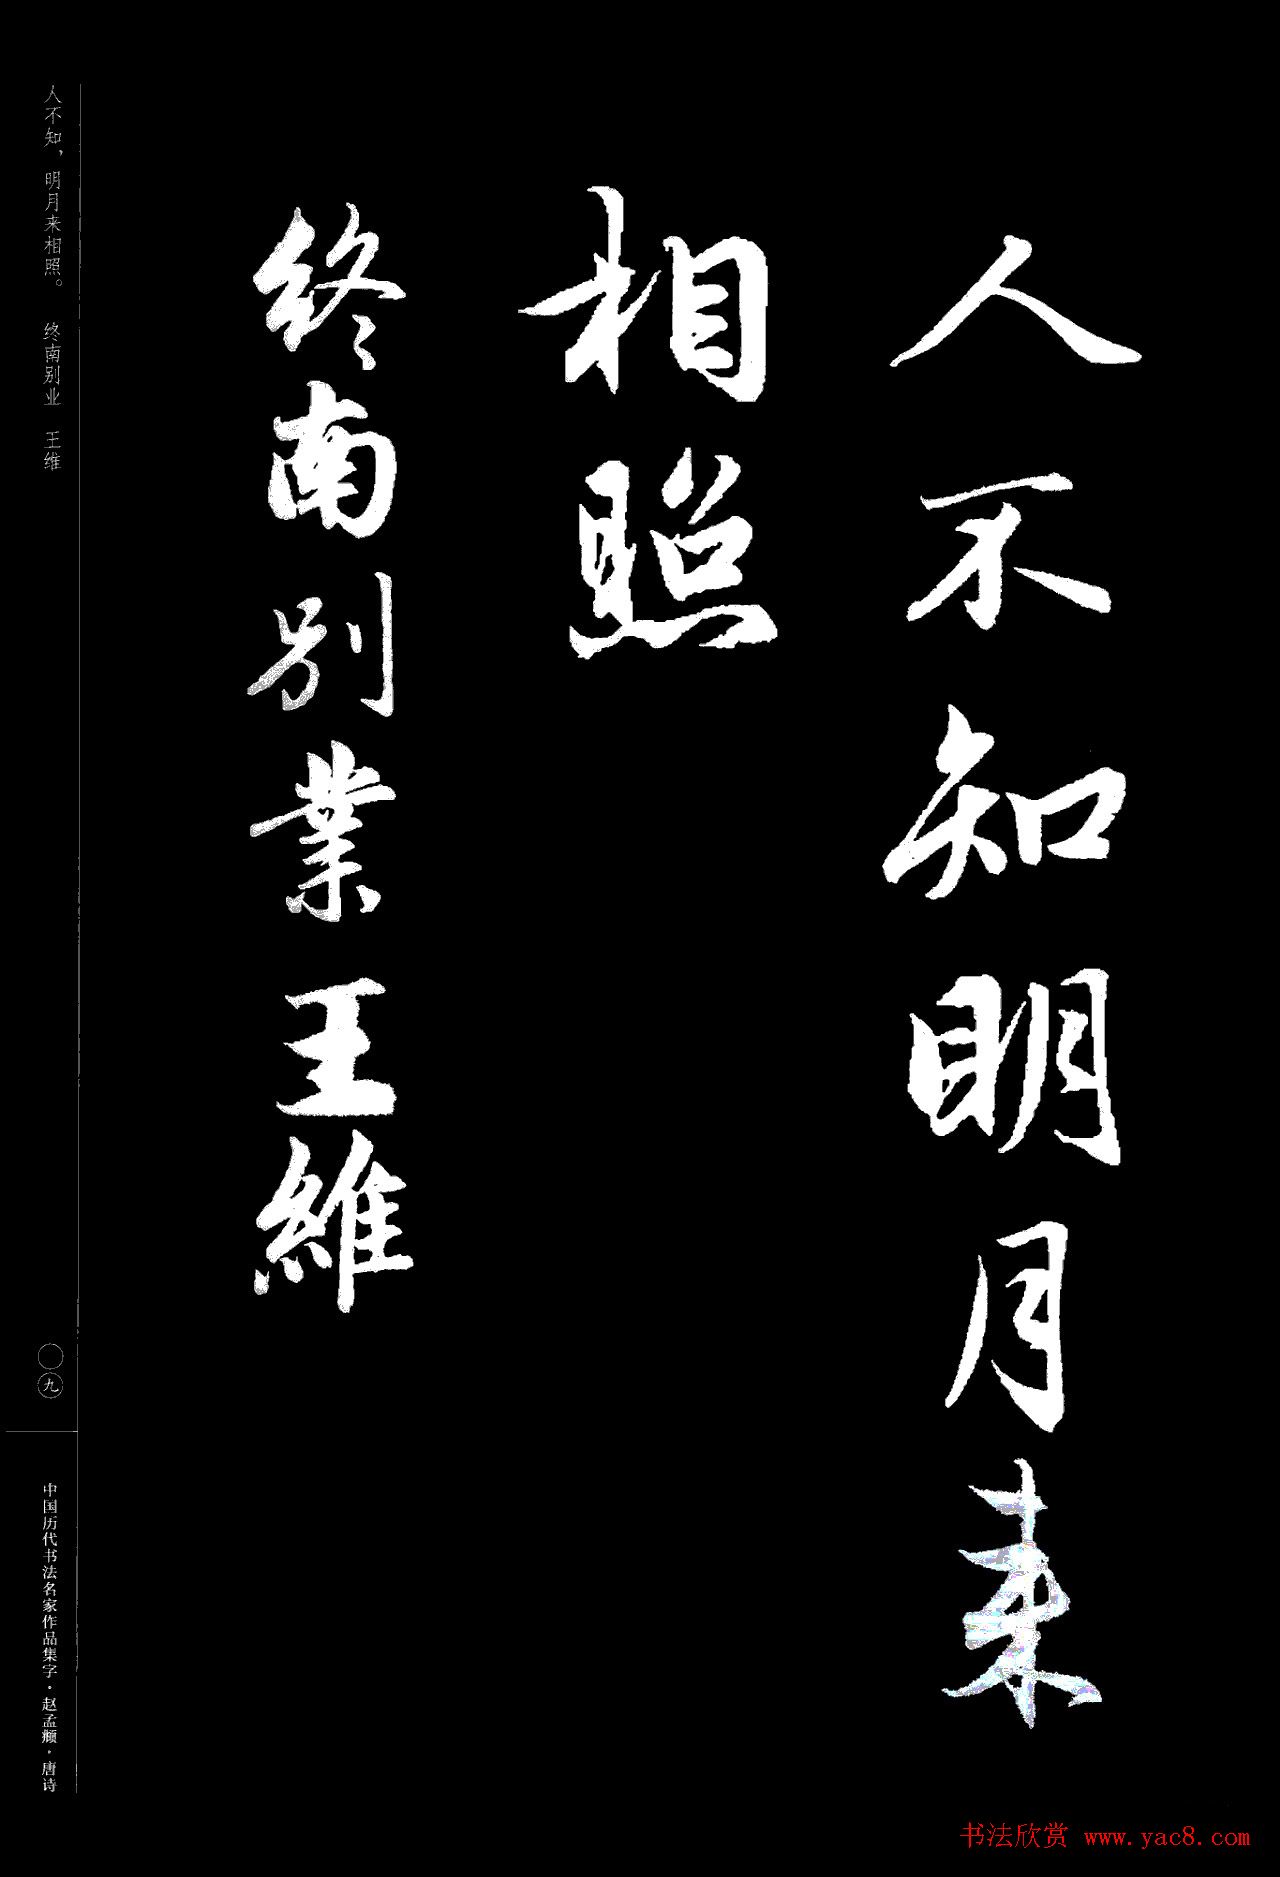 人不知明月来
相照
终南别業王維
人不知，明月来相照。 终南别业 王维
〇九
中国历代书法名家作品集字·赵孟頫·唐诗
书法欣赏 www.yac8.com